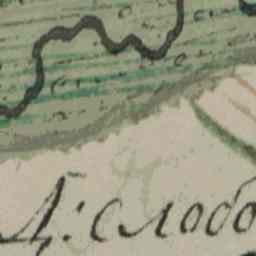 Д: слобо